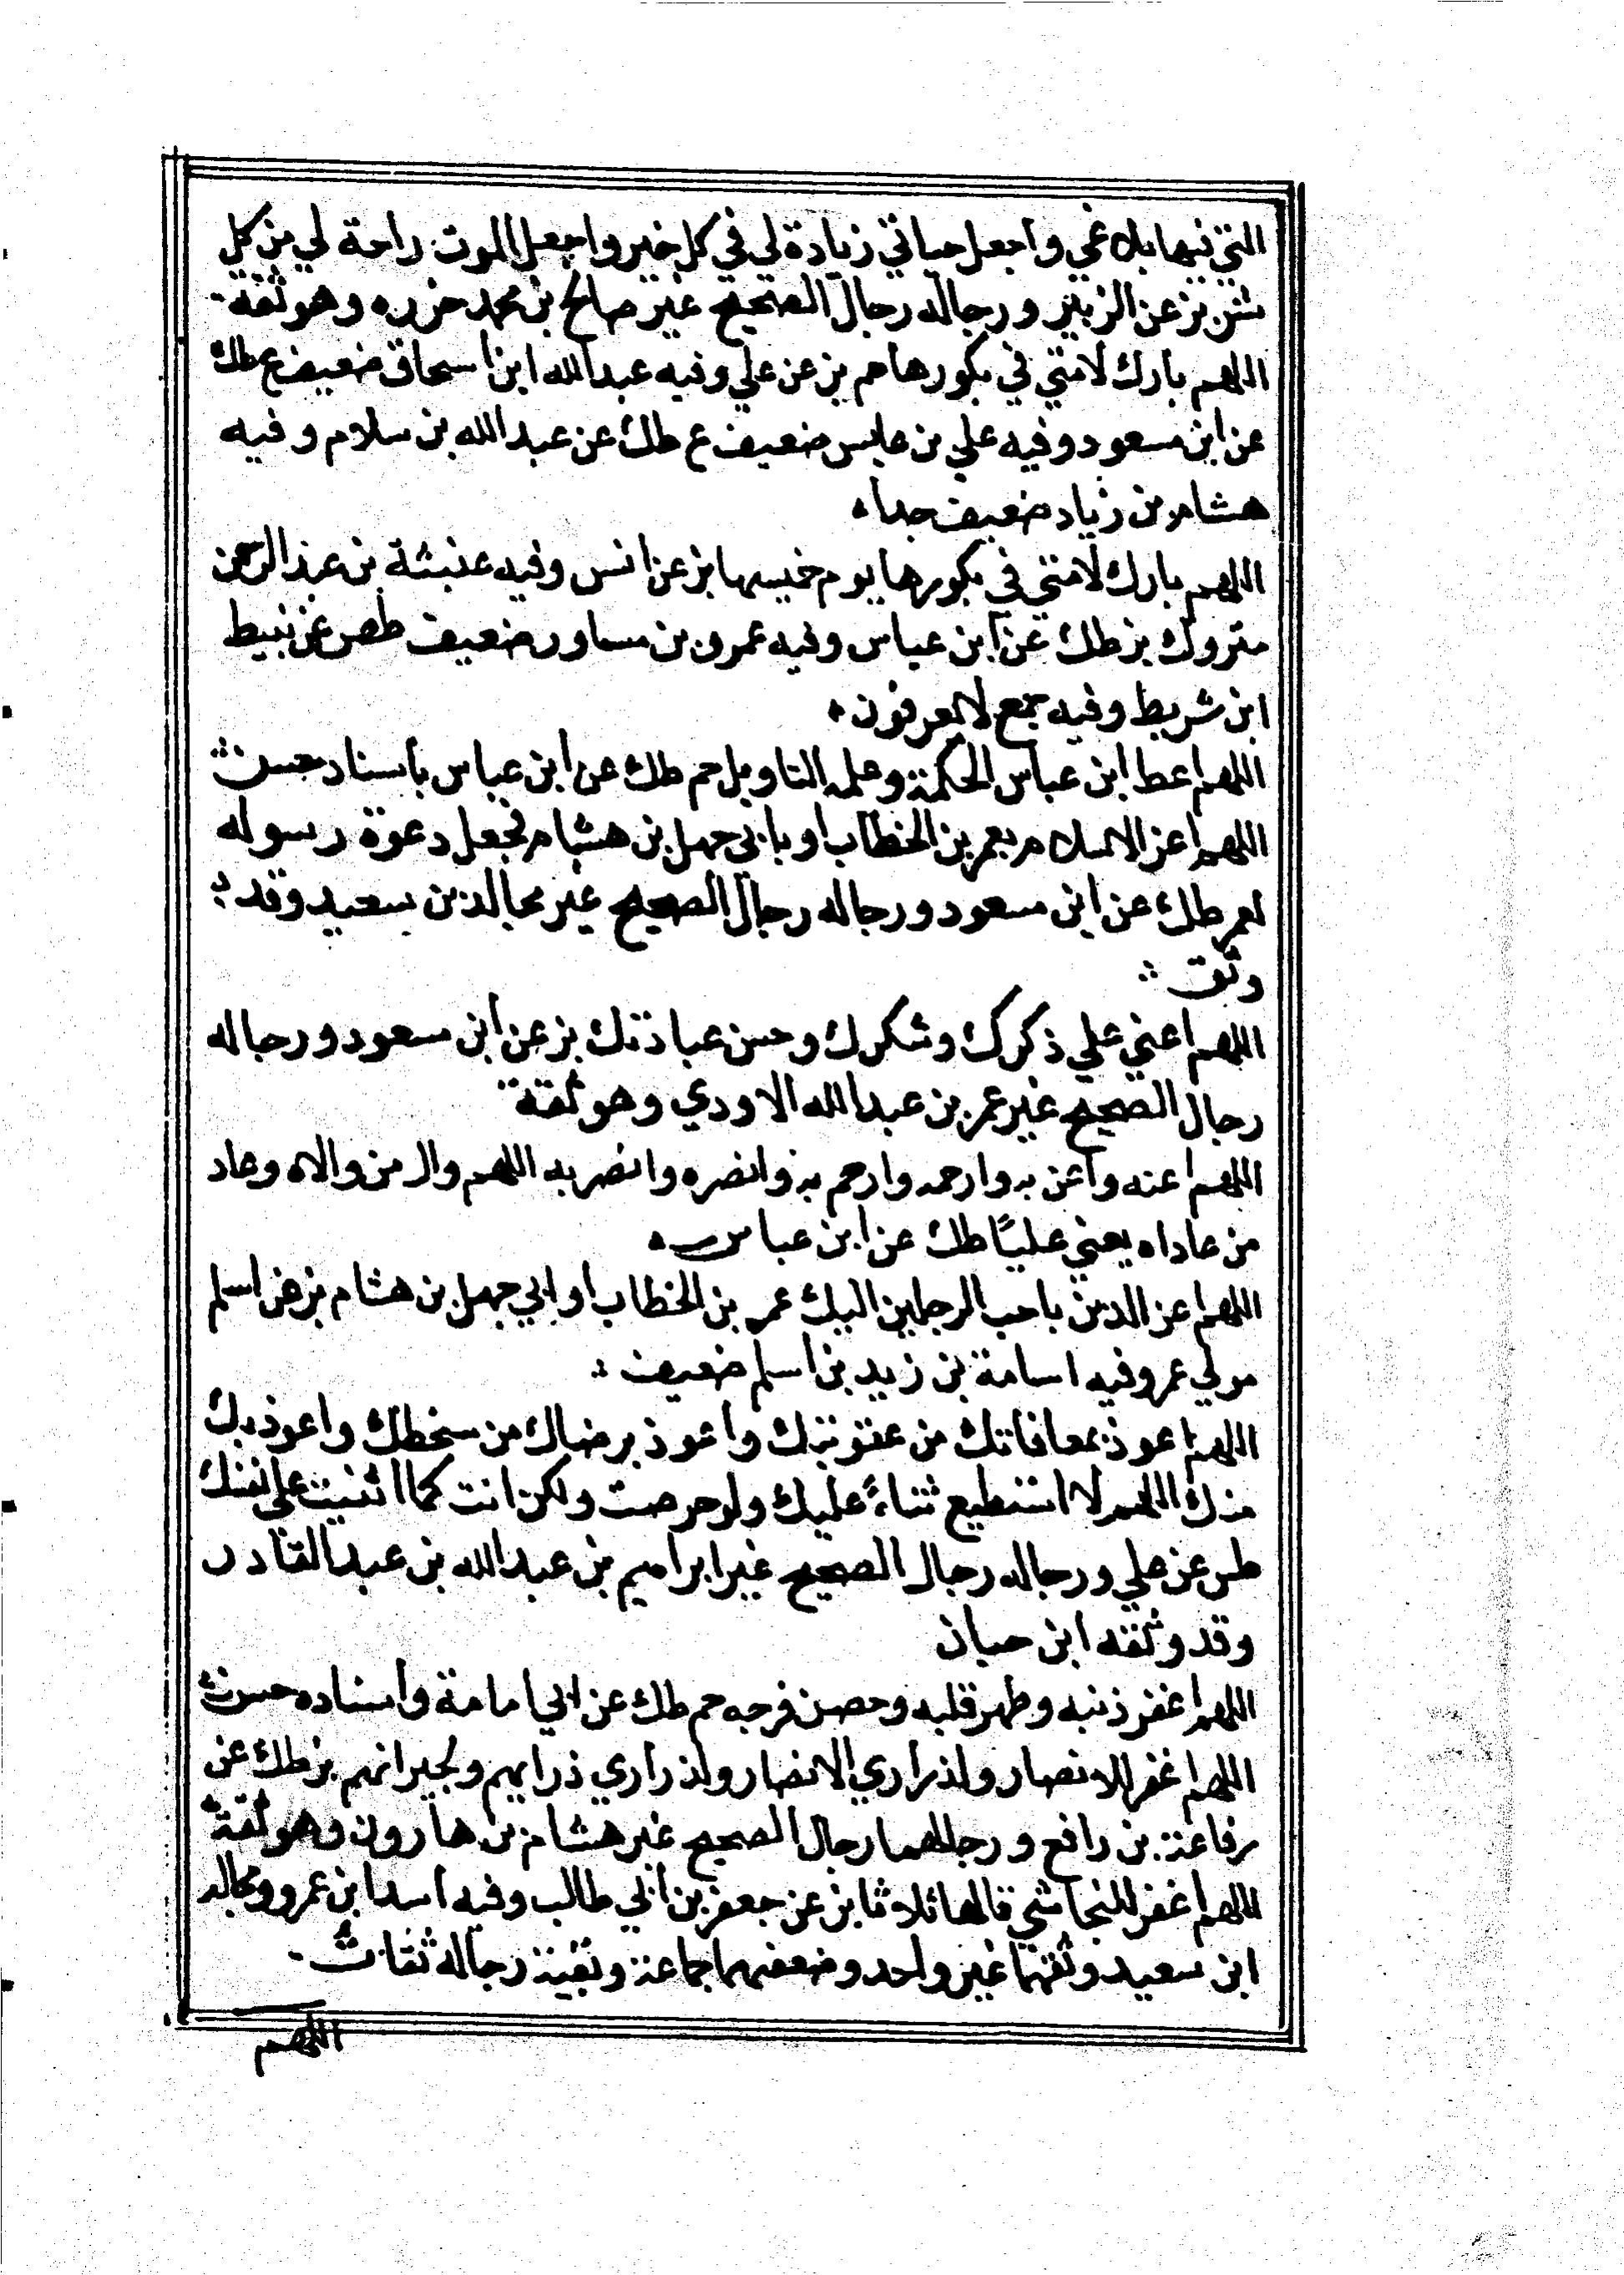 التي فيها بلاغي واجعل حياتي زيادة لي في كل خير واجعل الموت راحة لي من كل
شر بز عن الزبير ورجاله رجال الصحيح غير صالح بن محمد جزره وهو ثقة
اللهم بارك لامتي في بكورها حم بز عن علي وفيه عبد الله ابن اسحاق ضعيف ع طك
عن ابن مسعود وفيه علي بن عابس ضعيف ع طك عن عبد الله بن سلام وفيه
هشام بن زياد ضعيف جدا
اللهم بارك لامتي في بكورها يوم خميسها بز عن انس وفيه عنبسة بن عبد الرحمن
متروك بز طك عن ابن عباس وفيه عمرو بن مساور ضعيف طص عن نبيط
ابن شريط وفيه جمع لا يعرفون
اللهم اعط ابن عباس الحكمة وعلمه التاويل حم طك عن ابن عباس باسناد حسن
اللهم اعز الاسلام بعمر بن الخطاب او بابي جهل بن هشام فجعل دعوة رسوله
لعمر طك عن ابن مسعود ورجاله رجال الصحيح غير مجالد بن سعيد وقد
وثق
اللهم اعني علي ذكرك وشكرك وحسن عبادتك بز عن ابن مسعود ورجاله
رجال الصحيح غير عمر بن عبد الله الاودي وهو ثقة
اللهم اعنه واعن به وارحمه وارحم به وانصره وانصر به اللهم وال من والاه وعاد
من عاداه يعني عليًا طك عن ابن عباس
اللهم اعز الدين باحب الرجلين اليك عمر بن الخطاب او ابي جهل بن هشام بز عن اسلم
مولي عمر وفيه اسامة بن زيد بن اسلم ضعيف
اللهم اعوذ بمعافاتك من عقوبتك واعوذ برضاك من سخطك واعوذ بك
منك اللهم لا استطيع ثناءً عليك ولو حرصت ولكن انت كما اثنيت علي نفسك
طس عن علي ورجاله رجال الصحيح غير ابراهيم بن عبد الله بن عبد القادر
وقد وثقه ابن حبان
اللهم اغفر ذنبه وطهر قلبه وحصن فرجه حم طك عن ابي امامة واسناده حسن
اللهم اغفر للانصار ولذراري الانصار ولذراري ذرايهم ولجيرانهم بز طك عن
رفاعة بن رافع ورجالهما رجال الصحيح غير هشام بن هارون وهو ثقة
اللهم اغفر للنجاشي قالها ثلاثا بز عن جعفر بن ابي طالب وفيه اسد ابن عمرو ومجالد
ابن سعيد وثقهما غير واحد وضعفهما جماعة وبقية رجاله ثقات
اللهم